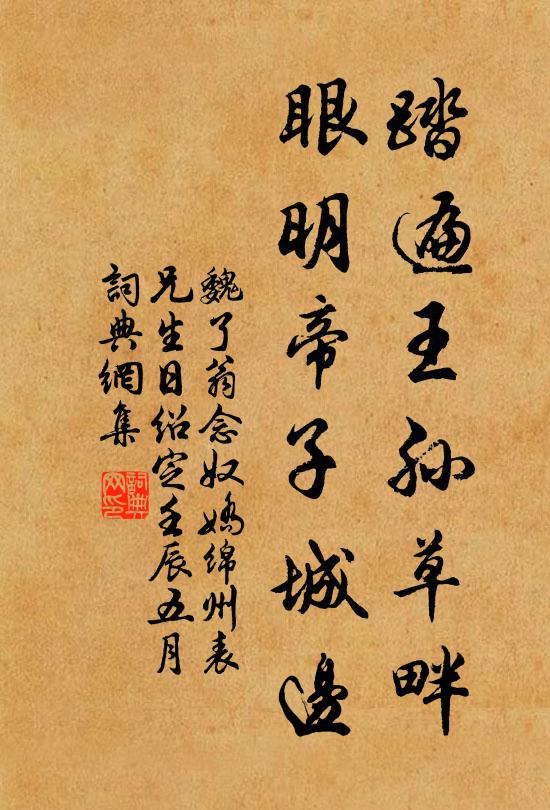 踏遍王孙草畔
眼明帝子城邊
魏了翁念奴嬌绵州表
兄生日绍定壬辰五月
詞典網集
詞典
网印